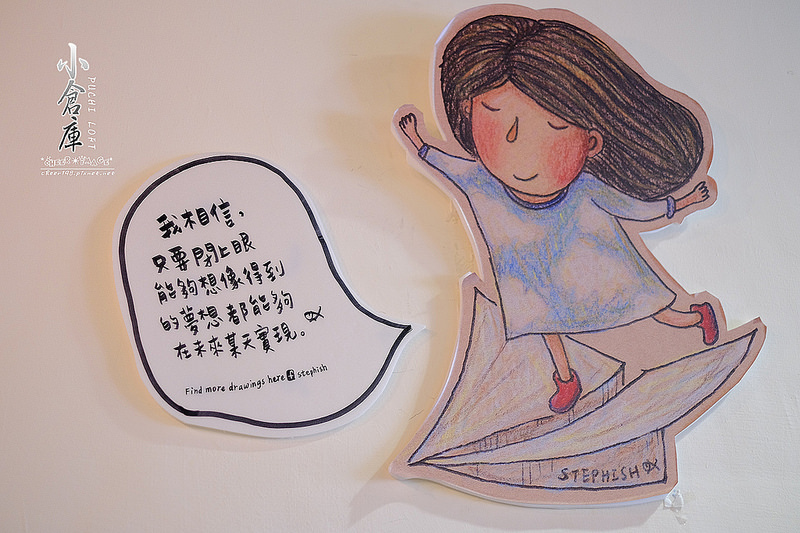 小倉庫
PUCHI LOFT
*CHEER*IMAGE*
cheer198.pixnet.net
我相信,
只要閉上眼
能夠想像得到
的夢想都能夠
在未來某天實現。
Find more drawings here f stephish
STEPHISH